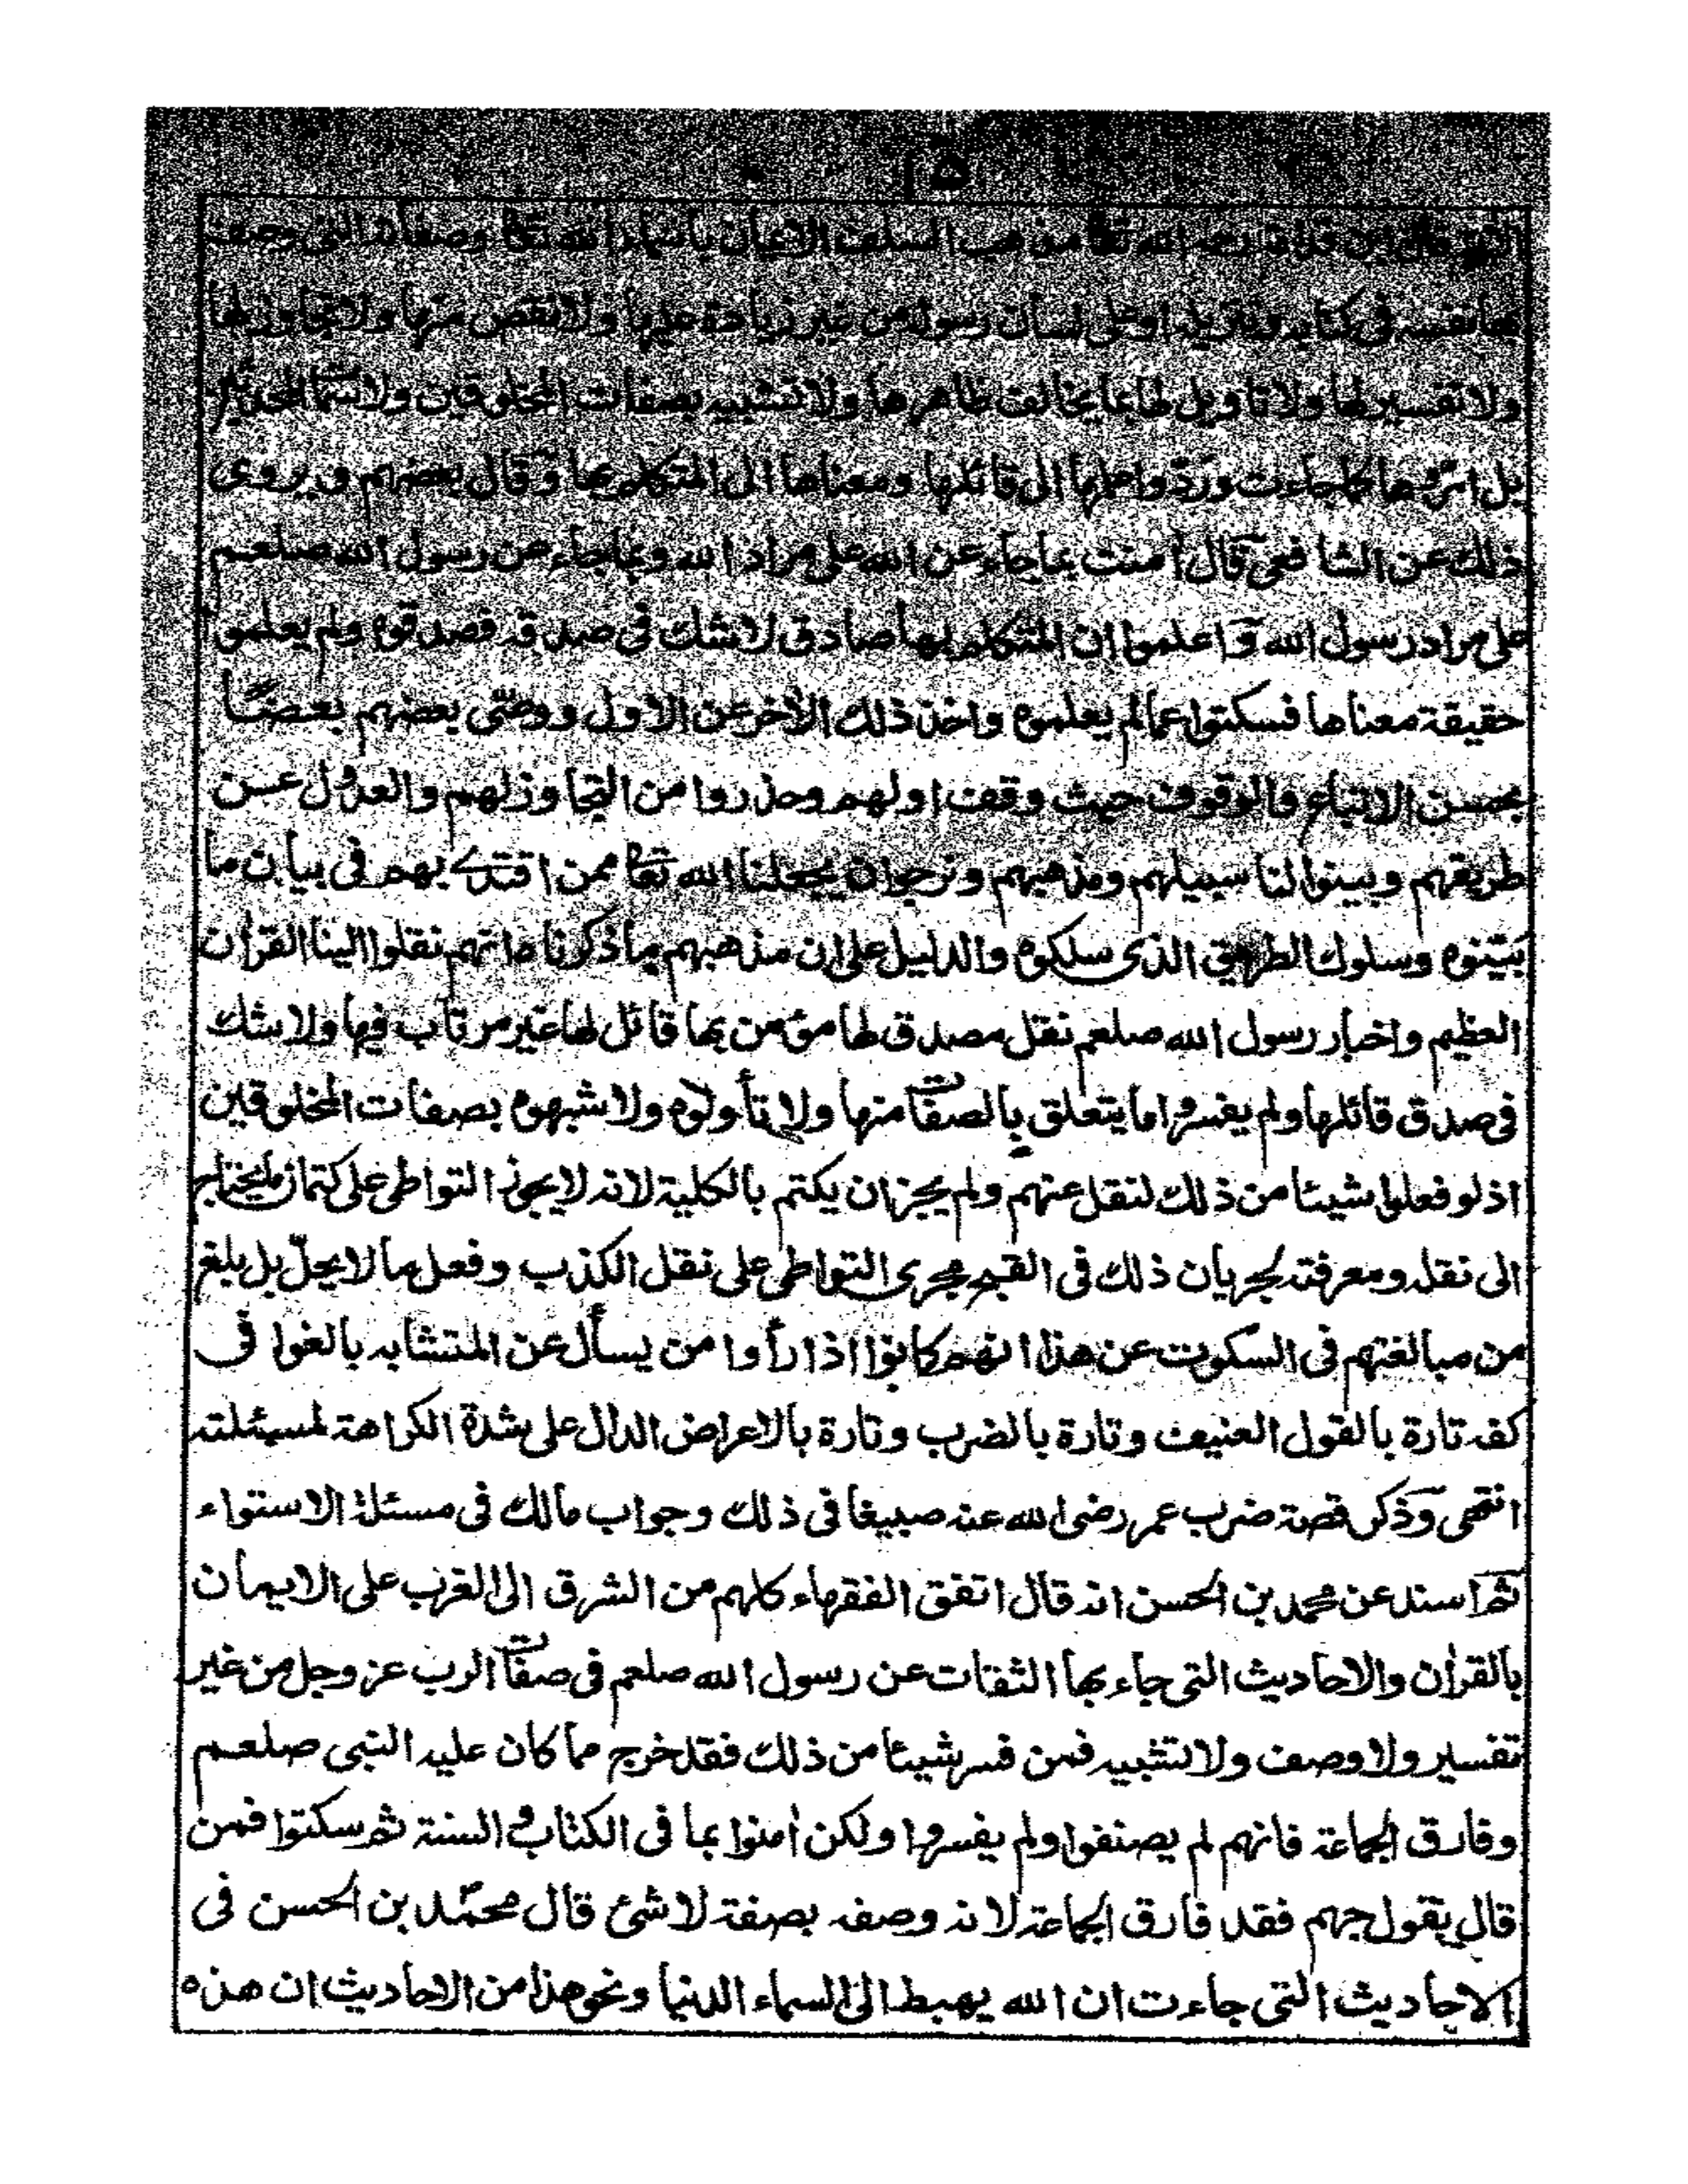 ١٥
ابن قدامة رحمه الله تعا مذهب السلف الايمان باسماء الله تعا وصفاته التى وصف
بها نفسه فى كتابه وتنزيله او على لسان رسوله من غير زيادة عليها ولا نقص منها ولا تجاوز لها
ولا تفسير لها ولا تاويل لها بما يخالف ظاهرها ولا تشبيه بصفات المخلوقين ولا
بل امروها كما جاءت وردوا علمها الى قائلها ومعناها الى المتكلم بها وقال بعضهم ويروى
ذلك عن الشافعى قال آمنت بما جاء عن الله على مراد الله وبما جاء عن رسول الله صلعم
على مراد رسول الله واعلموا ان المتكلم بها صادق لا شك فى صدقه فصدقوه ولم يعلموا
حقيقة معناها فسكتوا عما لم يعلموه واخذ ذلك الآخر عن الاول ووصّى بعضهم بعضًا
بحسن الاتباع والوقوف حيث وقف اولهم وحذروا من التجاوز لهم والعدول عن
طريقهم وبينوا لنا سبيلهم ومذهبهم ونرجوا ان يجعلنا الله تعا ممن اقتدى بهم فى بيان ما
بيّنوه وسلوك الطريق الذى سلكوه والدليل على ان مذهبهم ما ذكرنا انهم نقلوا الينا القرآن
العظيم واخبار رسول الله صلعم نقل مصدق لها مؤمن بها قائل لها غير مرتاب فيها ولا شك
فى صدق قائلها ولم يفسروا ما يتعلق بالصفات منها ولا تأولوه ولا شبهوه بصفات المخلوقين
اذ لو فعلوا شيئا من ذلك لنقل عنهم ولم يجز ان يكتم بالكلية لانه لا يجوز التواطى على كتمان ما يحتاج
الى نقله ومعرفته لجريان ذلك فى القبح مجرى التواطى على نقل الكذب وفعل ما لا يحلّ بل بلغ
من مبالغتهم فى السكوت عن هذا انهم كانوا اذا رأوا من يسأل عن المتشابه بالغوا فى
كفه تارة بالقول العنيف وتارة بالضرب وتارة بالاعراض الدال على شدة الكراهة لمسئلته
انتهى وذكر قصة ضرب عمر رضى الله عنه صبيغا فى ذلك وجواب مالك فى مسئلة الاستواء
ثم اسند عن محمد بن الحسن انه قال اتفق الفقهاء كلهم من الشرق الى الغرب على الايمان
بالقرآن والاحاديث التى جاء بها الثقات عن رسول الله صلعم فى صفات الرب عز وجل من غير
تفسير ولا وصف ولا تشبيه فمن فسر شيئا من ذلك فقد خرج مما كان عليه النبى صلعم
وفارق الجماعة فانهم لم يصنفوا ولم يفسروا ولكن اٰمنوا بما فى الكتاب والسنة ثم سكتوا فمن
قال بقول جهم فقد فارق الجماعة لانه وصفه بصفة لا شئ قال محمّد بن الحسن فى
الاحاديث التى جاءت ان الله يهبط الى السماء الدنيا ونحو هذا من الاحاديث ان هذه